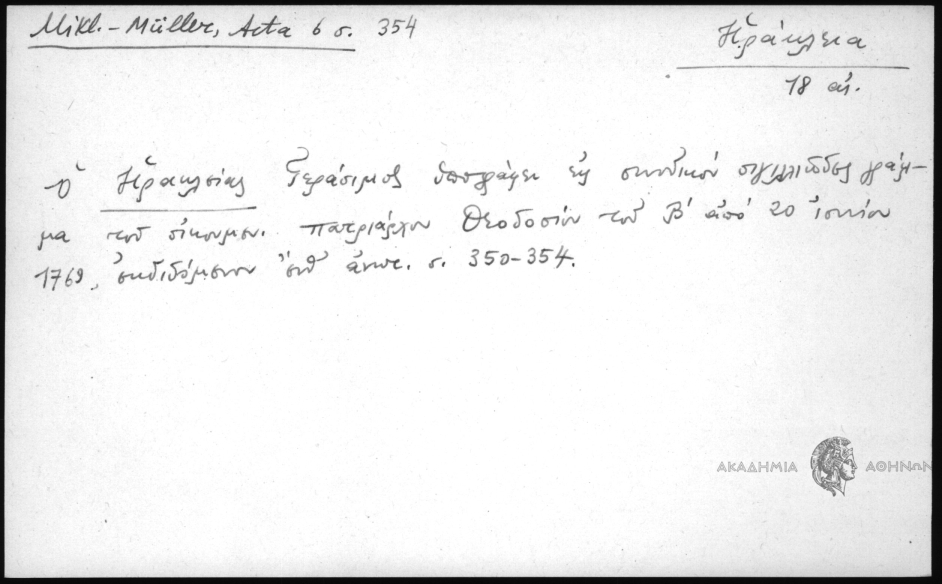 Mikl.-Müller, Acta 6 σ. 354
Ἡράκλεια
18 αἰ.
Ὁ Ἡρακλείας Γεράσιμος ὑπογράφει εἰς συνοδικὸν σιγιλλιῶδες γράμ-
μα τοῦ οἰκουμεν. πατριάρχου Θεοδοσίου τοῦ Β' ἀπό 20 ἰουνίου
1769, ἐκδιδόμενον ἐνθ' ἀνωτ. σ. 350-354.
ΑΚΑΔΗΜΙΑ ΑΘΗΝΩΝ